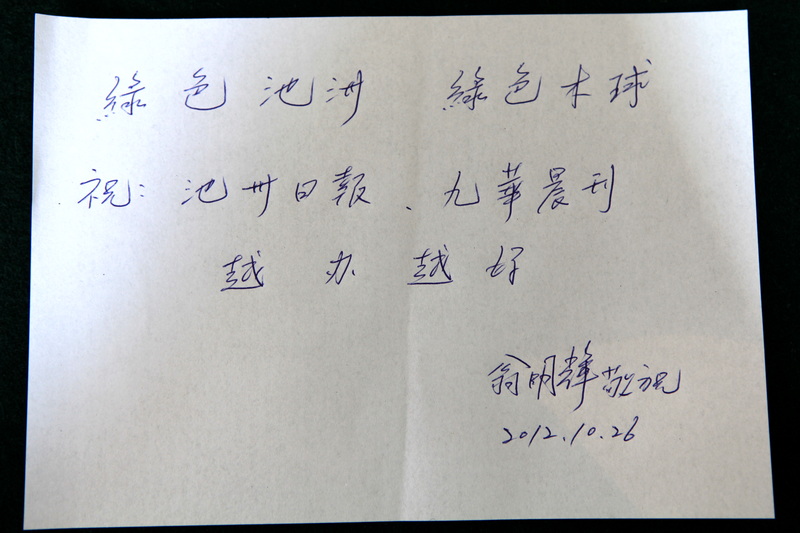 綠色池洲 綠色木球
祝：池卅日報、九華晨刊
越办越好
翁明輝敬祝
2012.10.26